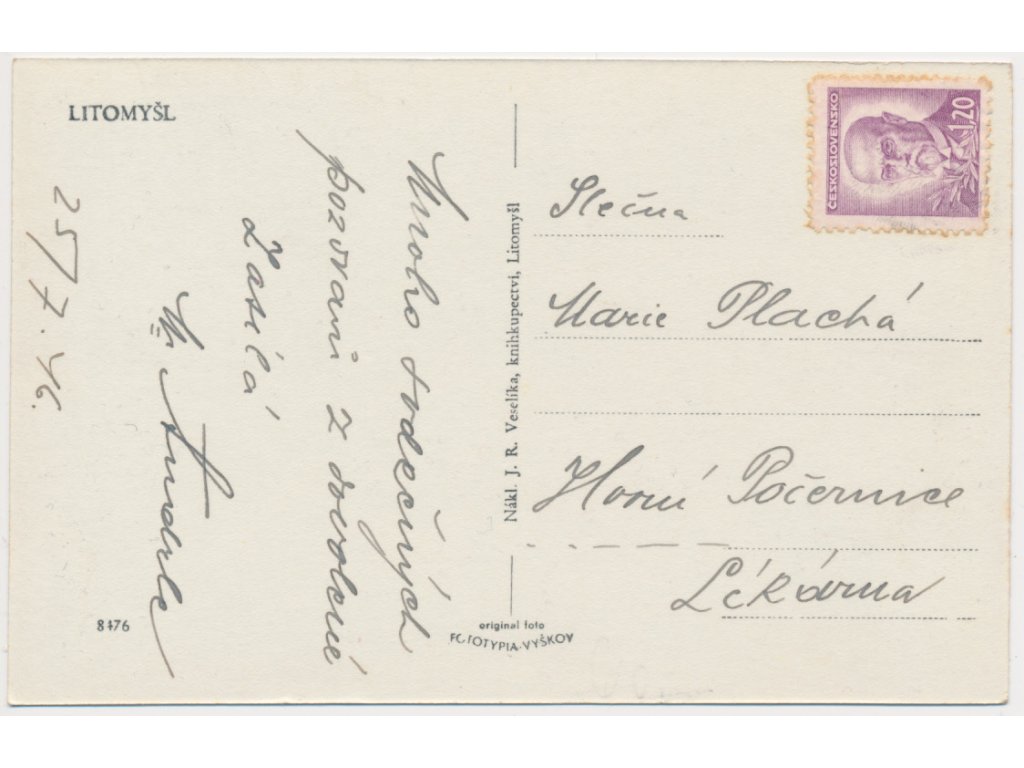 LITOMYŠL
25/7. 46.
Mnoho srdečných
pozdravů z dovolené
Zasílá
Anderle
8476
Nákl. J. R. Veselíka, knihkupectví, Litomyšl
original foto
FOTOTYPIA-VYŠKOV
ČESKOSLOVENSKO
1.20
Slečna
Marie Plachá
Horní Počernice
Lékárna